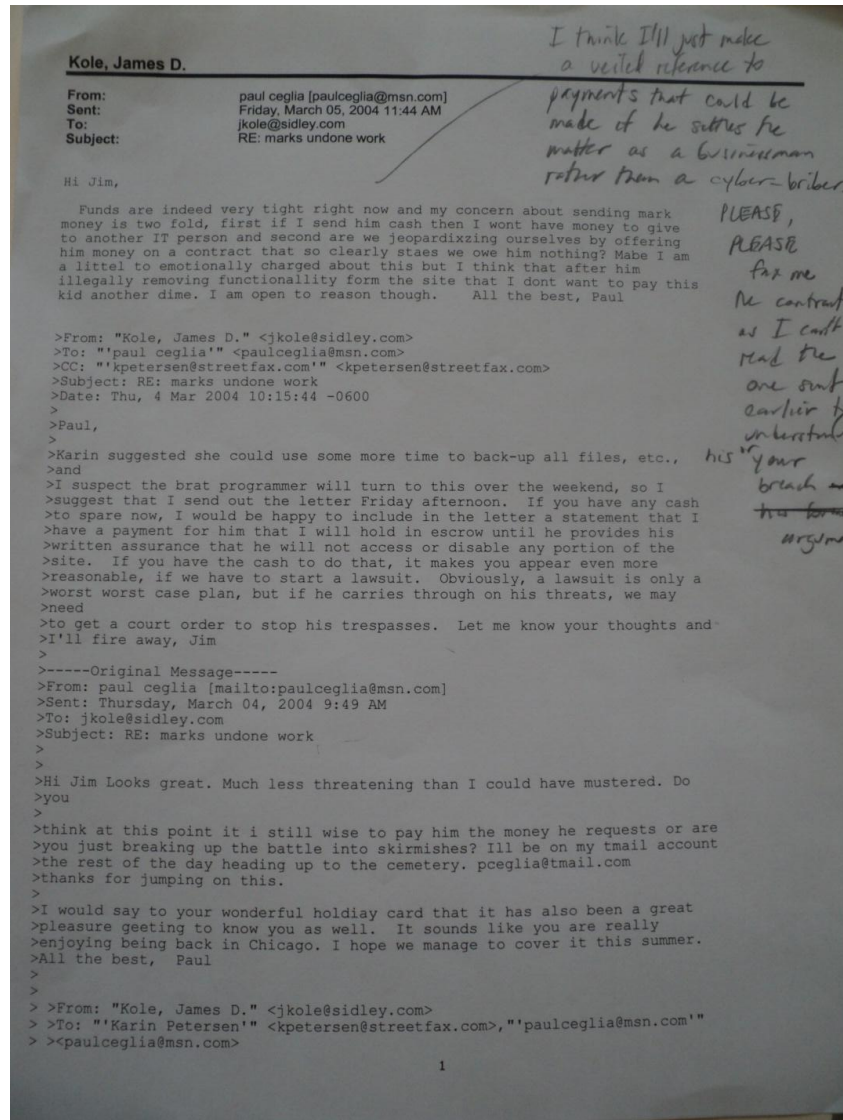 I think I'll just make
a veiled reference to
payments that could be
made if he settles the
matter as a businessman
rather than a cyber-briber
PLEASE,
PLEASE
fax me
the contract
as I can't
read the
one sent
earlier to
understand
his "your
breach
argum
Kole, James D.
From: paul ceglia [paulceglia@msn.com]
Sent: Friday, March 05, 2004 11:44 AM
To: jkole@sidley.com
Subject: RE: marks undone work
Hi Jim,
Funds are indeed very tight right now and my concern about sending mark
money is two fold, first if I send him cash then I wont have money to give
to another IT person and second are we jeopardixzing ourselves by offering
him money on a contract that so clearly staes we owe him nothing? Mabe I am
a littel to emotionally charged about this but I think that after him
illegally removing functionallity form the site that I dont want to pay this
kid another dime. I am open to reason though. All the best, Paul
>From: "Kole, James D." <jkole@sidley.com>
>To: "'paul ceglia'" <paulceglia@msn.com>
>CC: "'kpetersen@streetfax.com'" <kpetersen@streetfax.com>
>Subject: RE: marks undone work
>Date: Thu, 4 Mar 2004 10:15:44 -0600
>
>Paul,
>
>Karin suggested she could use some more time to back-up all files, etc.,
>and
>I suspect the brat programmer will turn to this over the weekend, so I
>suggest that I send out the letter Friday afternoon. If you have any cash
>to spare now, I would be happy to include in the letter a statement that I
>have a payment for him that I will hold in escrow until he provides his
>written assurance that he will not access or disable any portion of the
>site. If you have the cash to do that, it makes you appear even more
>reasonable, if we have to start a lawsuit. Obviously, a lawsuit is only a
>worst worst case plan, but if he carries through on his threats, we may
>need
>to get a court order to stop his trespasses. Let me know your thoughts and
>I'll fire away, Jim
>
>-----Original Message-----
>From: paul ceglia [mailto:paulceglia@msn.com]
>Sent: Thursday, March 04, 2004 9:49 AM
>To: jkole@sidley.com
>Subject: RE: marks undone work
>
>
>Hi Jim Looks great. Much less threatening than I could have mustered. Do
>you
>
>think at this point it i still wise to pay him the money he requests or are
>you just breaking up the battle into skirmishes? Ill be on my tmail account
>the rest of the day heading up to the cemetery. pceglia@tmail.com
>thanks for jumping on this.
>
>I would say to your wonderful holdiay card that it has also been a great
>pleasure geeting to know you as well. It sounds like you are really
>enjoying being back in Chicago. I hope we manage to cover it this summer.
>All the best, Paul
>
>
> >From: "Kole, James D." <jkole@sidley.com>
> >To: "'Karin Petersen'" <kpetersen@streetfax.com>,"'paulceglia@msn.com'"
> ><paulceglia@msn.com>
1